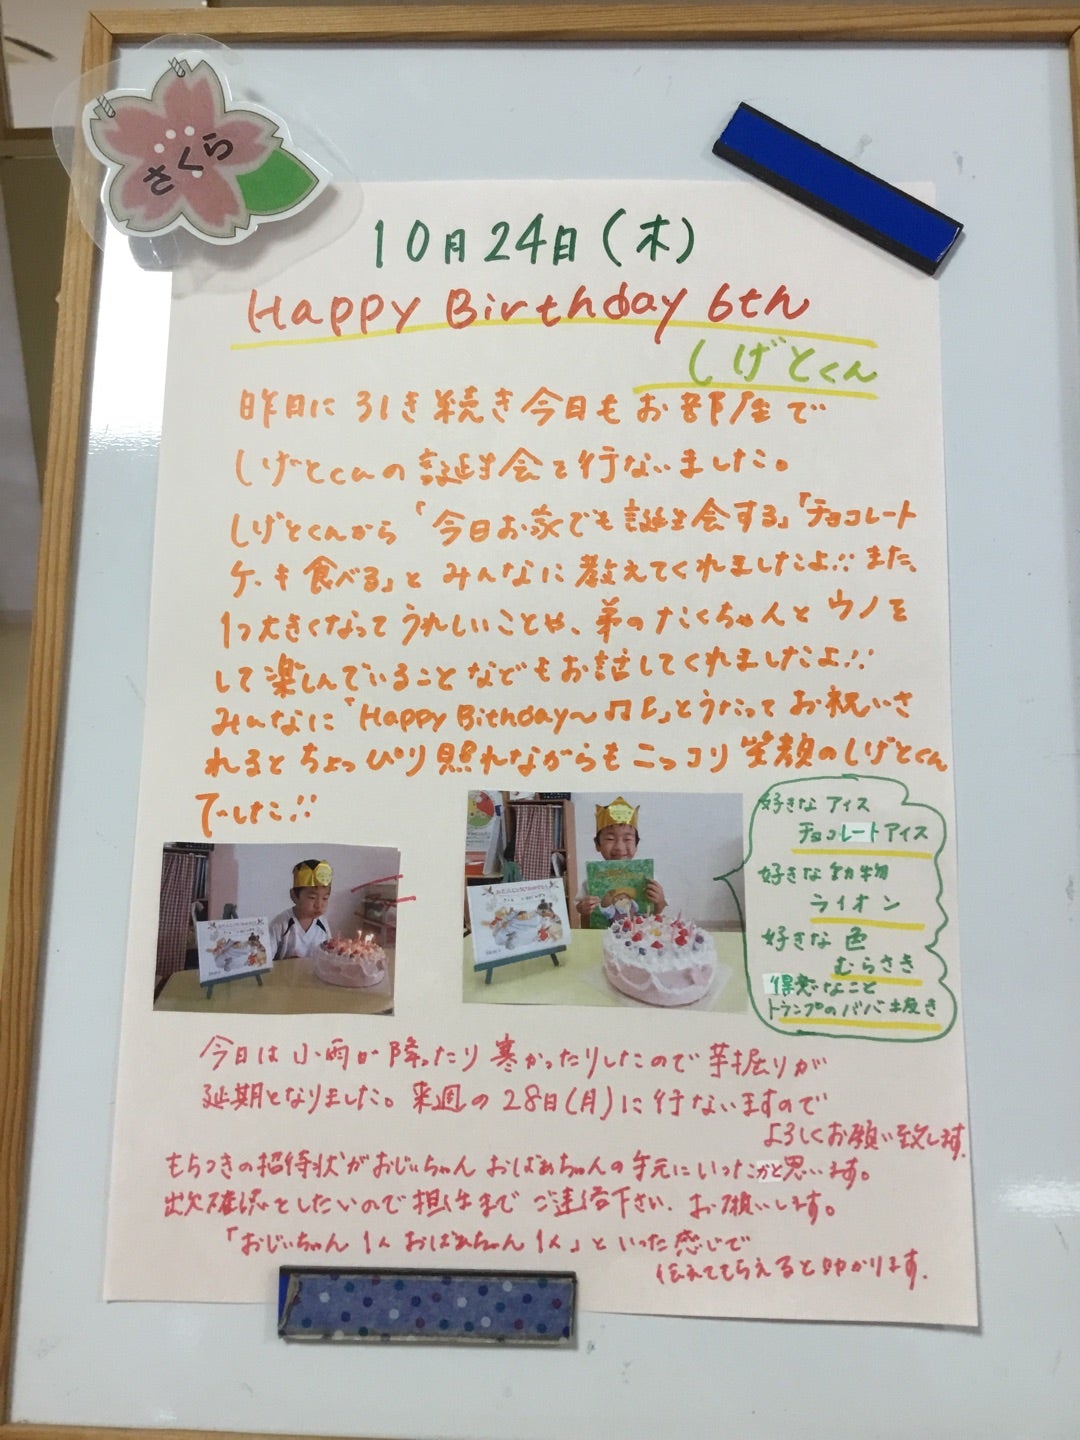 さくら
10月24日(木)
Happy Birthday 6th
しげとくん
昨日に引き続き今日もお部屋で
しげとくんの誕生会を行ないました。
しげとくんから「今日お家でも誕生会する」「チョコレート
ケーキ食べる」と みんなに教えてくれましたよ!! また、
1つ大きくなって うれしいことや、弟のたくちゃんと ウノを
して楽しんでいること などもお話してくれましたよ!!
みんなに「Happy Bithday〜♫♪」とうたって お祝いさ
れると ちょっぴり 照れながらも ニッコリ 笑顔のしげとくん
でした!!
好きな アイス
チョコレートアイス
好きな 動物
ライオン
好きな 色
むらさき
得意なこと
トランプのババ抜き
今日は 小雨が 降ったり 寒かったりしたので 芋掘りが
延期となりました。来週の 28日(月)に行ないますので
よろしくお願い致します。
もちつきの招待状がおじいちゃん おばあちゃんの手元にいったかと思います。
出欠確認としたいので 担任まで ご連絡下さい。お願いします。
「おじいちゃん 1人 おばあちゃん 1人」と いった感じで
伝えてもらえると助かります。